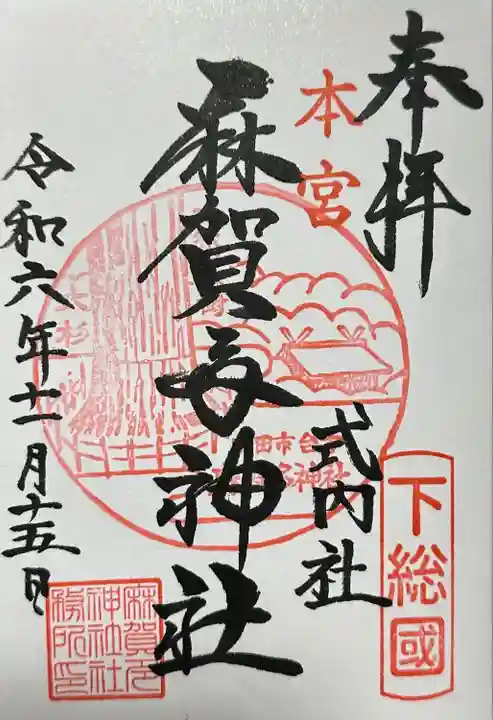 奉拝
本宮
式内社
下総國
麻賀多神社
令和六年十一月十五日
杉
田市台
神社
麻賀多
神社社
務所印